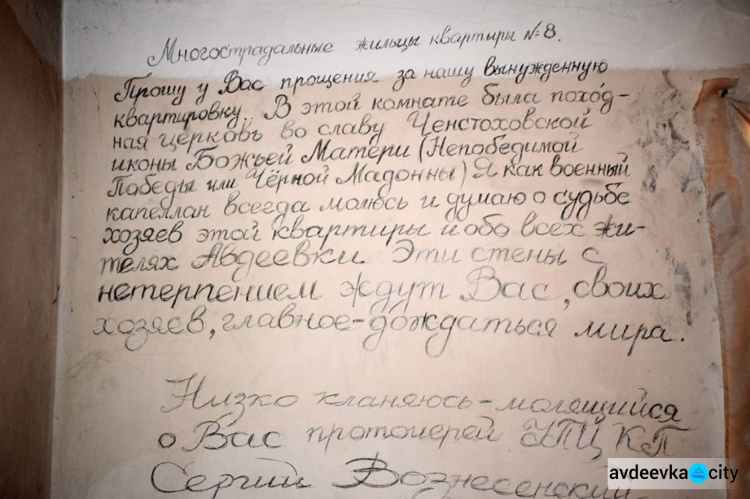 Многострадальные жильцы квартиры №8.
Прошу у Вас прощения за нашу вынужденную
квартировку. В этой комнате была поход-
ная церковь во славу Ченстоховской
иконы Божьей Матери (Непобедимой
Победы или Чёрной Мадонны) Я как военный
капеллан всегда молюсь и думаю о судьбе
хозяев этой квартиры и обо всех жи-
телях Авдеевки. Эти стены с
нетерпением ждут Вас, своих
хозяев, главное-дождаться мира.
Низко кланяюсь-молящийся
о Вас протоиерей УПЦ КП
Сергий Вознесенский
avdeevka.city